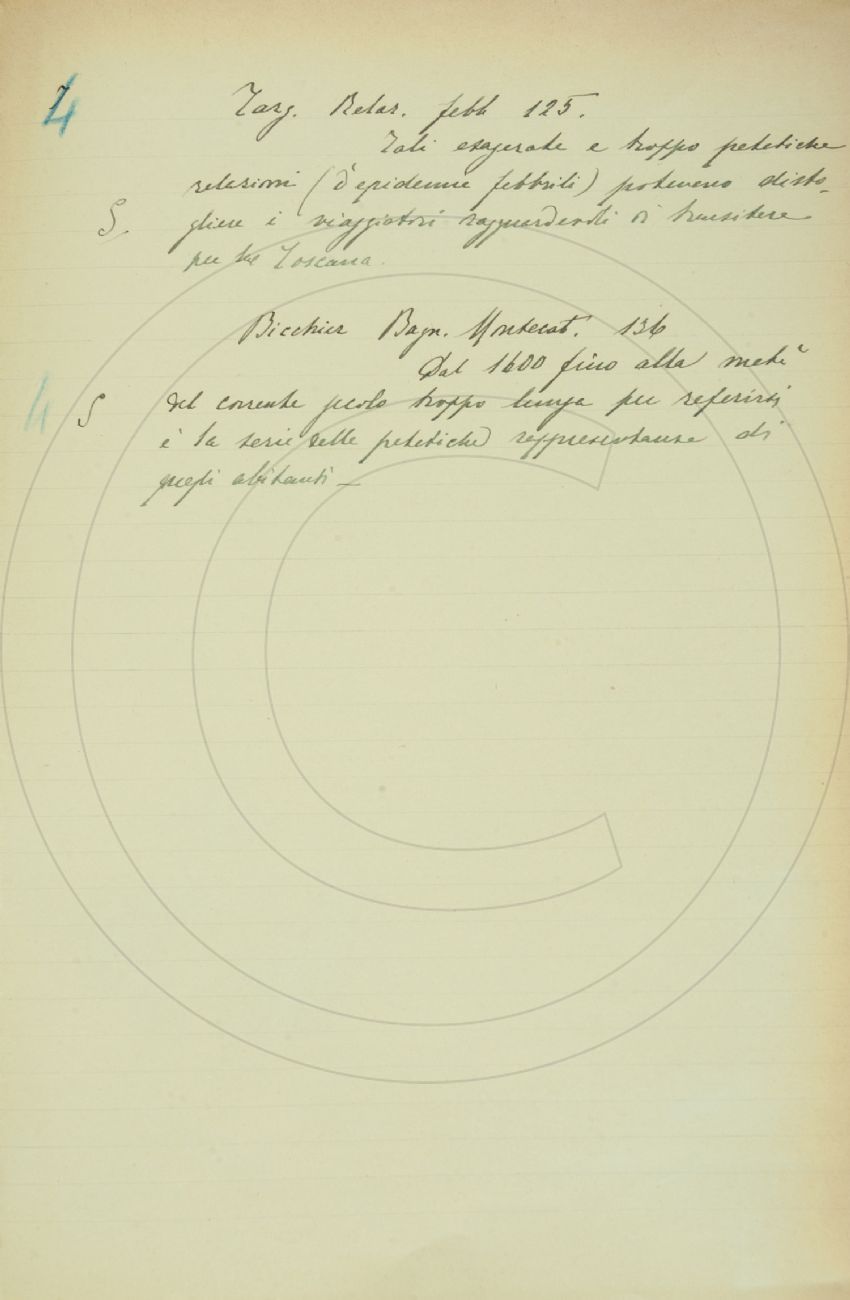 4
Targ. Relaz. febb. 125.
Tali esagerate e troppo patetiche
relazioni (d'epidemie febbrili) potevano disto-
S. gliere i viaggiatori ragguardevoli di transitare
per la Toscana.
Bicchier. Bagn. Montecat. 136
Dal 1600 fino alla metà
4 S del corrente secolo troppo lunga per referirsi
è la serie delle patetiche rappresentanze di
quegli abitanti —